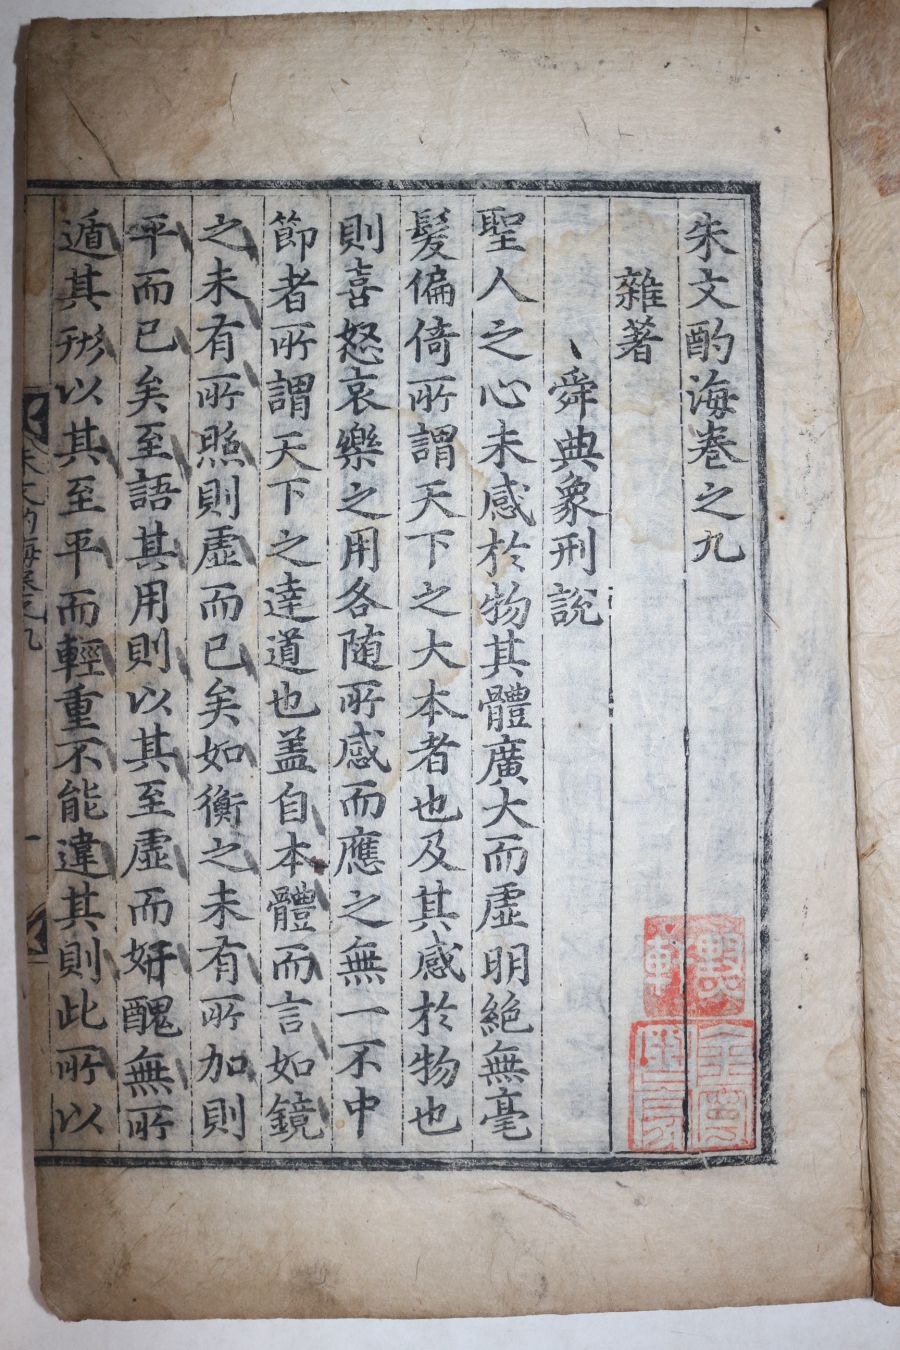 朱文酌海卷之九
雜著
舜典象刑說
聖人之心未感於物其體廣大而虛明絶無毫
髮偏倚所謂天下之大本者也及其感於物也
則喜怒哀樂之用各随所感而應之無一不中
節者所謂天下之達道也盖自本體而言如鏡
之未有所照則虛而已矣如衡之未有所加則
平而已矣至語其用則以其至虛而好醜無所
遁其形以其至平而輕重不能違其則此所以
朱文酌海卷之九
一